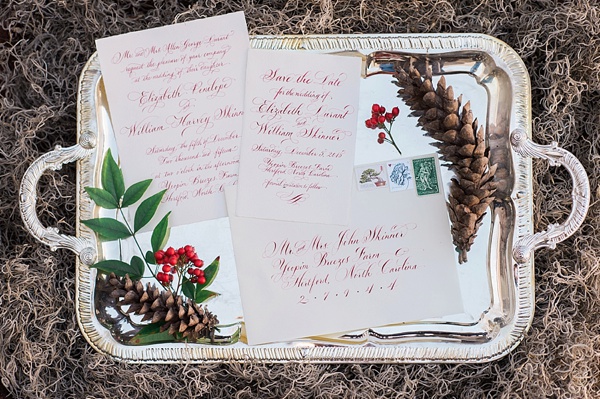 Mr. and Mrs. Allen George Durant
request the pleasure of your company
at the wedding of their daughter
Elizabeth Penelope
to
William Harvey Skinner
Saturday, the fifth of December
Two thousand and fifteen
at two o'clock in the
Yeopim Breezes Farm
Hertford, North
Save the Date
for the wedding of
Elizabeth Durant
and
William Skinner
Saturday, December 5, 2015
Yeopim Breezes Farm
Hertford, North Carolina
formal invitation to follow
Mr. Mrs. John Skinner
Yeopim Breezes Farm
Hertford, North Carolina
2·7·9·4·4